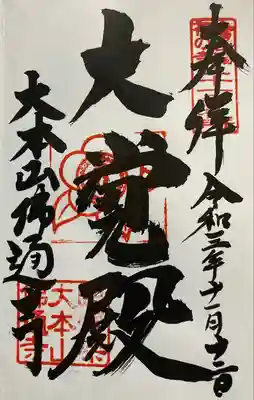 奉拝
令和三年十一月十二日
大覚殿
大本山佛通寺
大本山